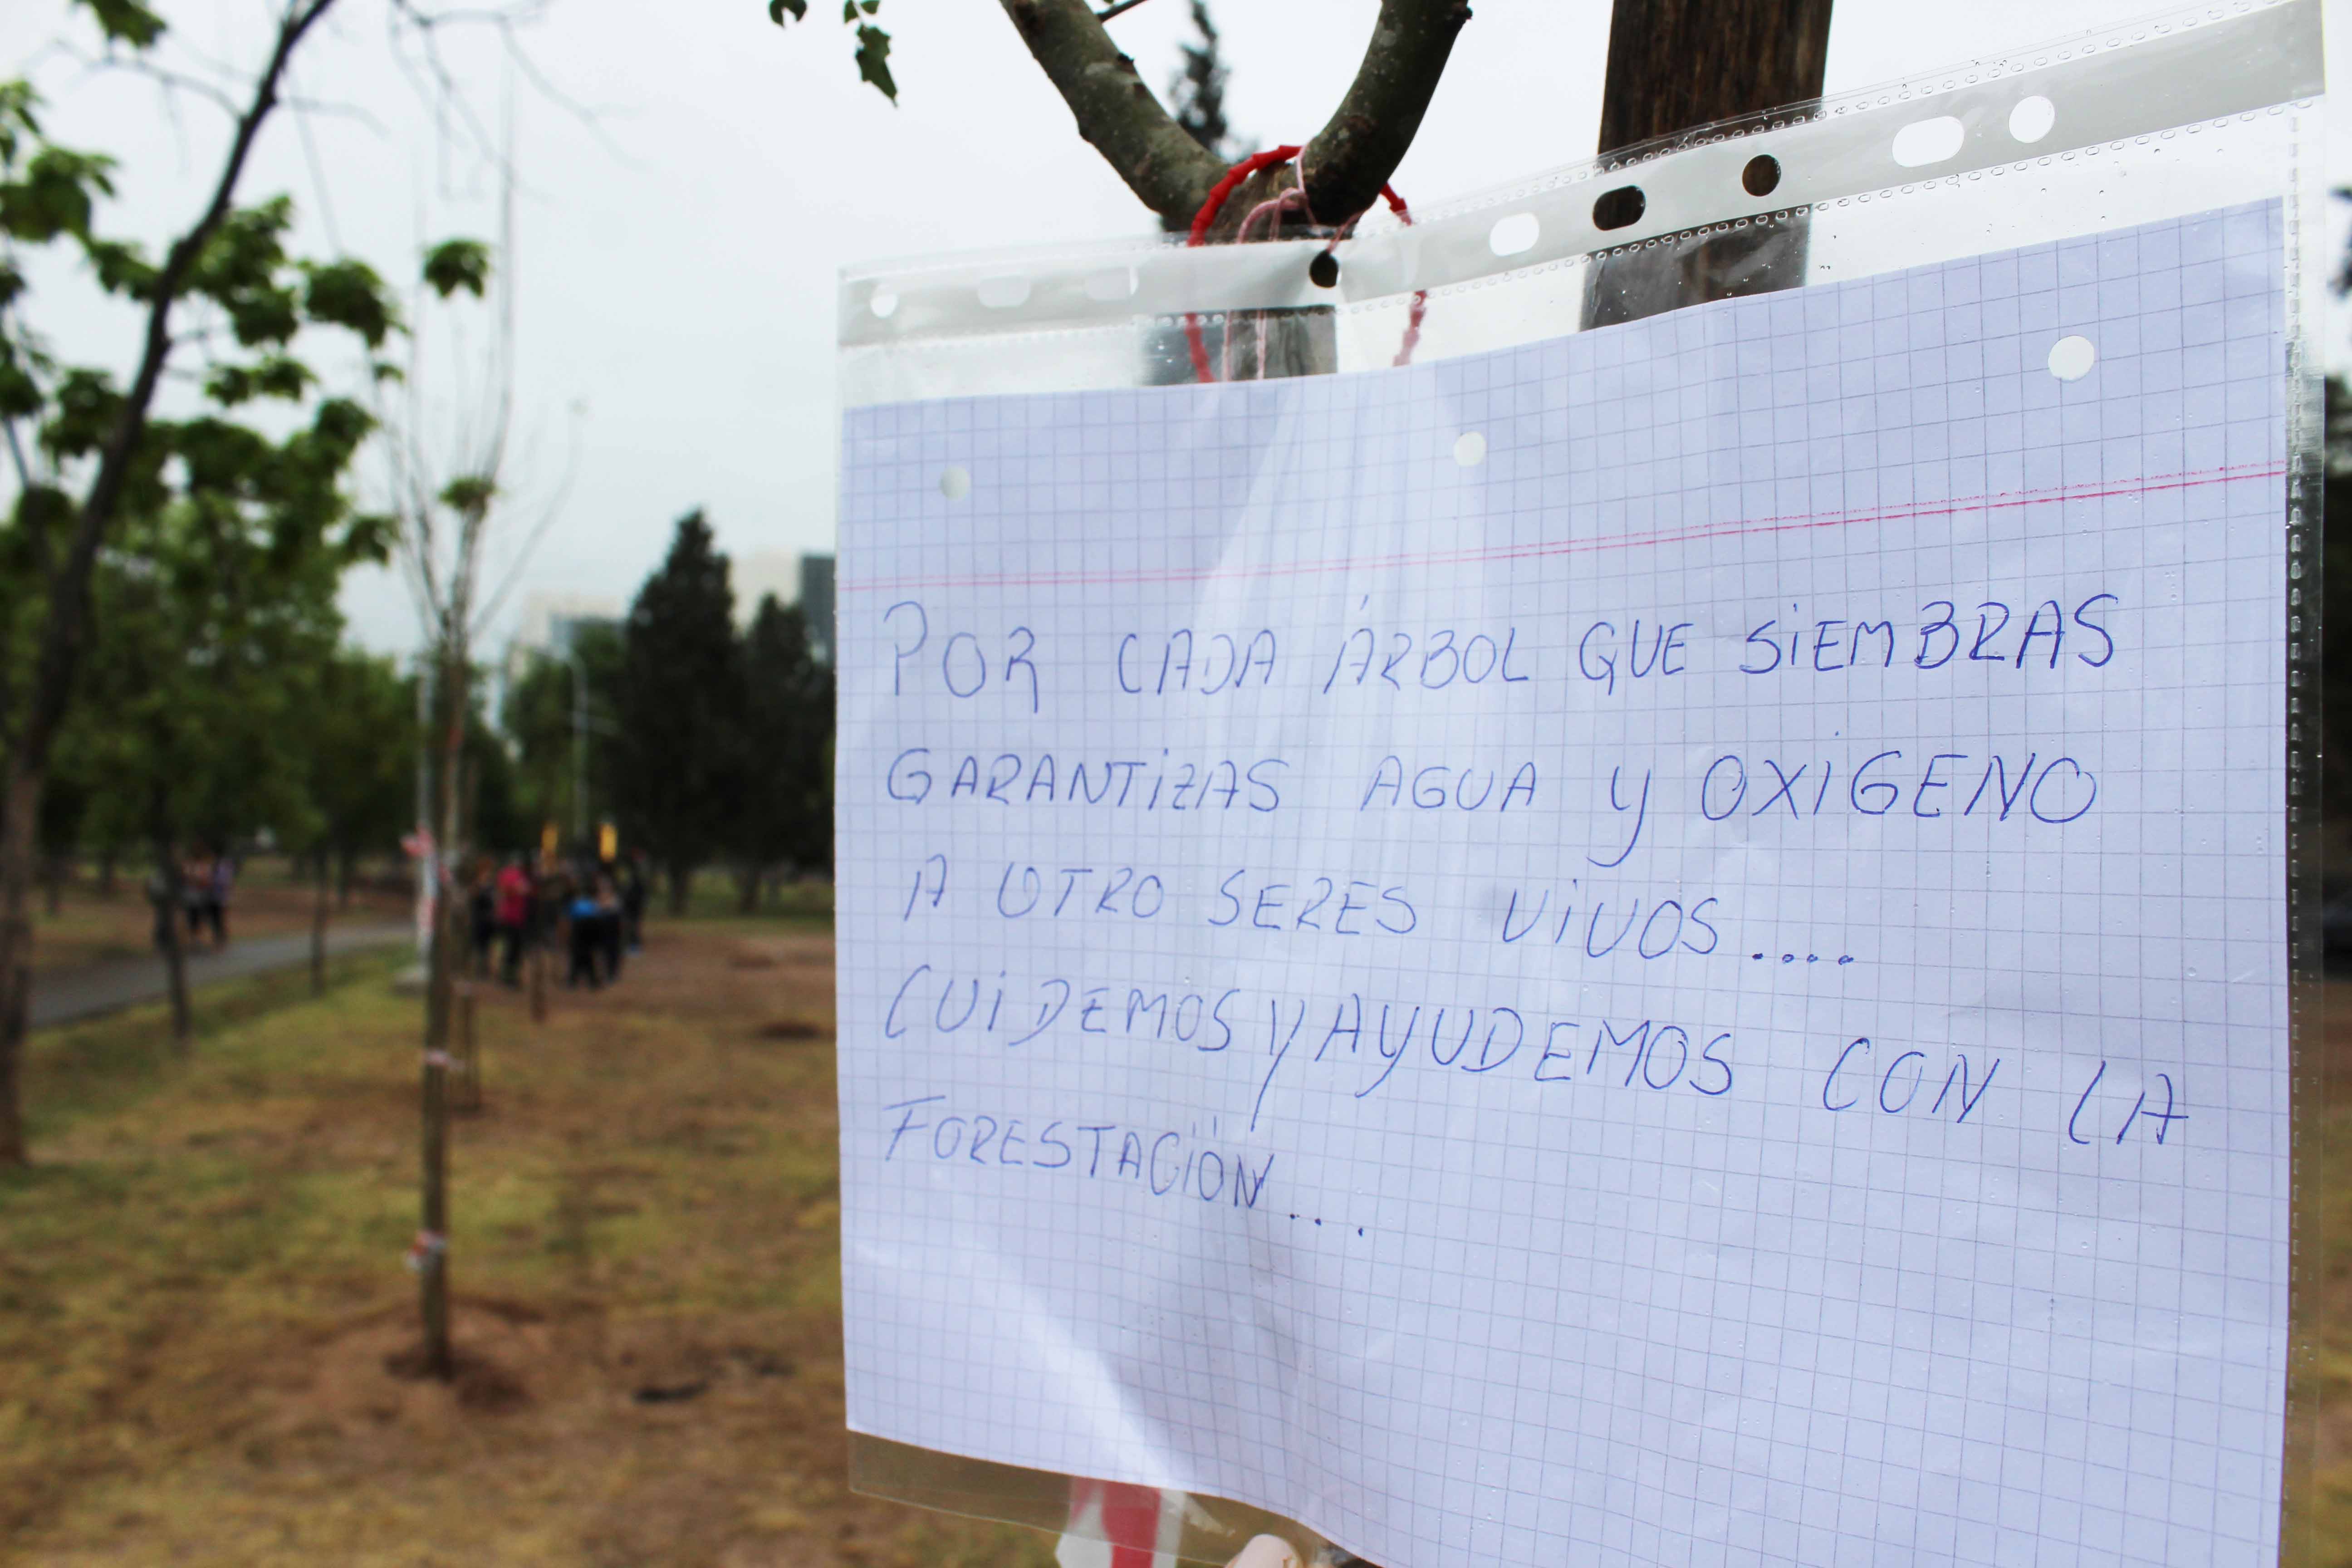 POR CADA ÁRBOL QUE SIEMBRAS
GARANTIZAS AGUA Y OXIGENO
A OTRO SERES VIVOS....
CUIDEMOS Y AYUDEMOS CON LA
FORESTACIÓN...